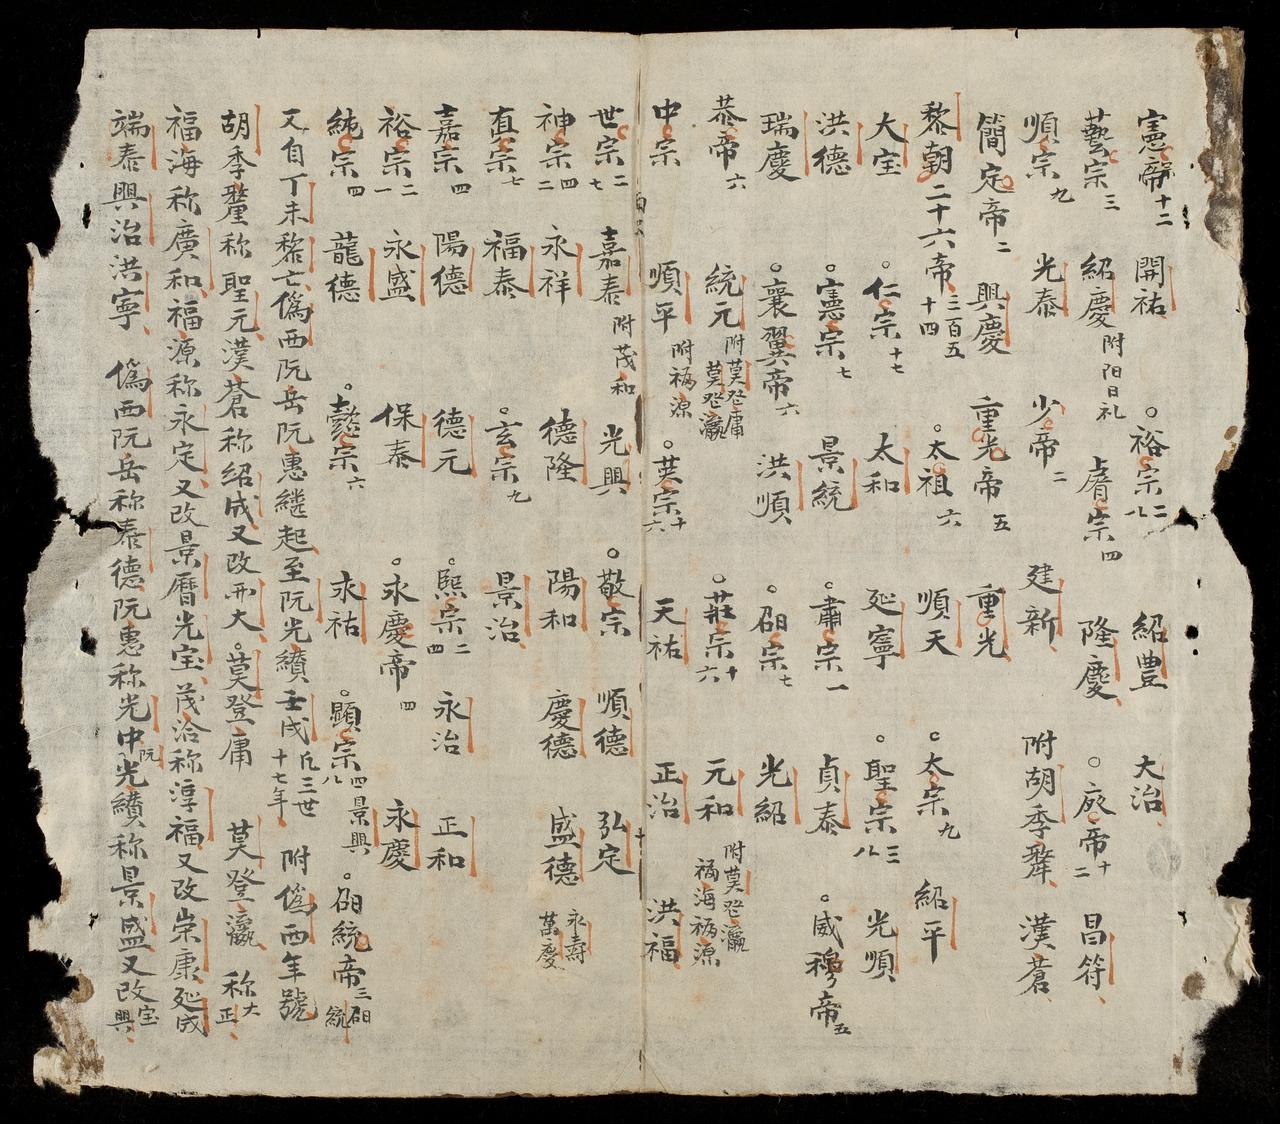 憲帝十二 開祐 〇裕宗二八 紹豊 大治
藝宗三 紹慶附阳日礼 睿宗四 隆慶 〇廃帝十二 昌符
順宗九 光泰 少帝二 建新 附胡季犛 漢蒼
簡定帝二 興慶 重光帝五 重光
黎朝二十六帝三百五十四 〇太祖六 順天 〇太宗九 紹平
大宝 〇仁宗十七 太和 延寧 〇聖宗三八 光順
洪德 〇憲宗七 景統 〇肅宗一 貞泰 〇威穆帝五
瑞慶 〇襄翼帝六 洪順 〇昭宗七 光紹
恭帝六 統元附莫登庸莫登瀛 〇莊宗十六 元和附莫登瀛福海福源
中宗 順平附福源 〇英宗十六 天祐 正治 洪福
世宗二七 嘉泰附茂和 光興 〇敬宗 順德 弘定
神宗四二 永祥 德隆 陽和 慶德 盛德 永壽萬慶
真宗七 福泰 〇玄宗九 景治
嘉宗四 陽德 德元 〇熙宗二四 永治 正和
裕宗二一 永盛 保泰 〇永慶帝四 永慶
純宗四 龍德 〇懿宗六 永祐 〇顕宗四八景興 〇昭統帝三昭統
又自丁未黎亡偽西阮岳阮惠繼起至阮光纘壬戌凡三世十七年 附偽西年號
胡季犛称聖元漢蒼称紹成又改開大〇莫登庸 莫登瀛 称大正
福海称廣和福源称永定又改景曆光宝茂洽称淳福又改崇康延成
端泰興治洪寧 偽西阮岳称泰德阮惠称光中阮光纘称景盛又改宝興